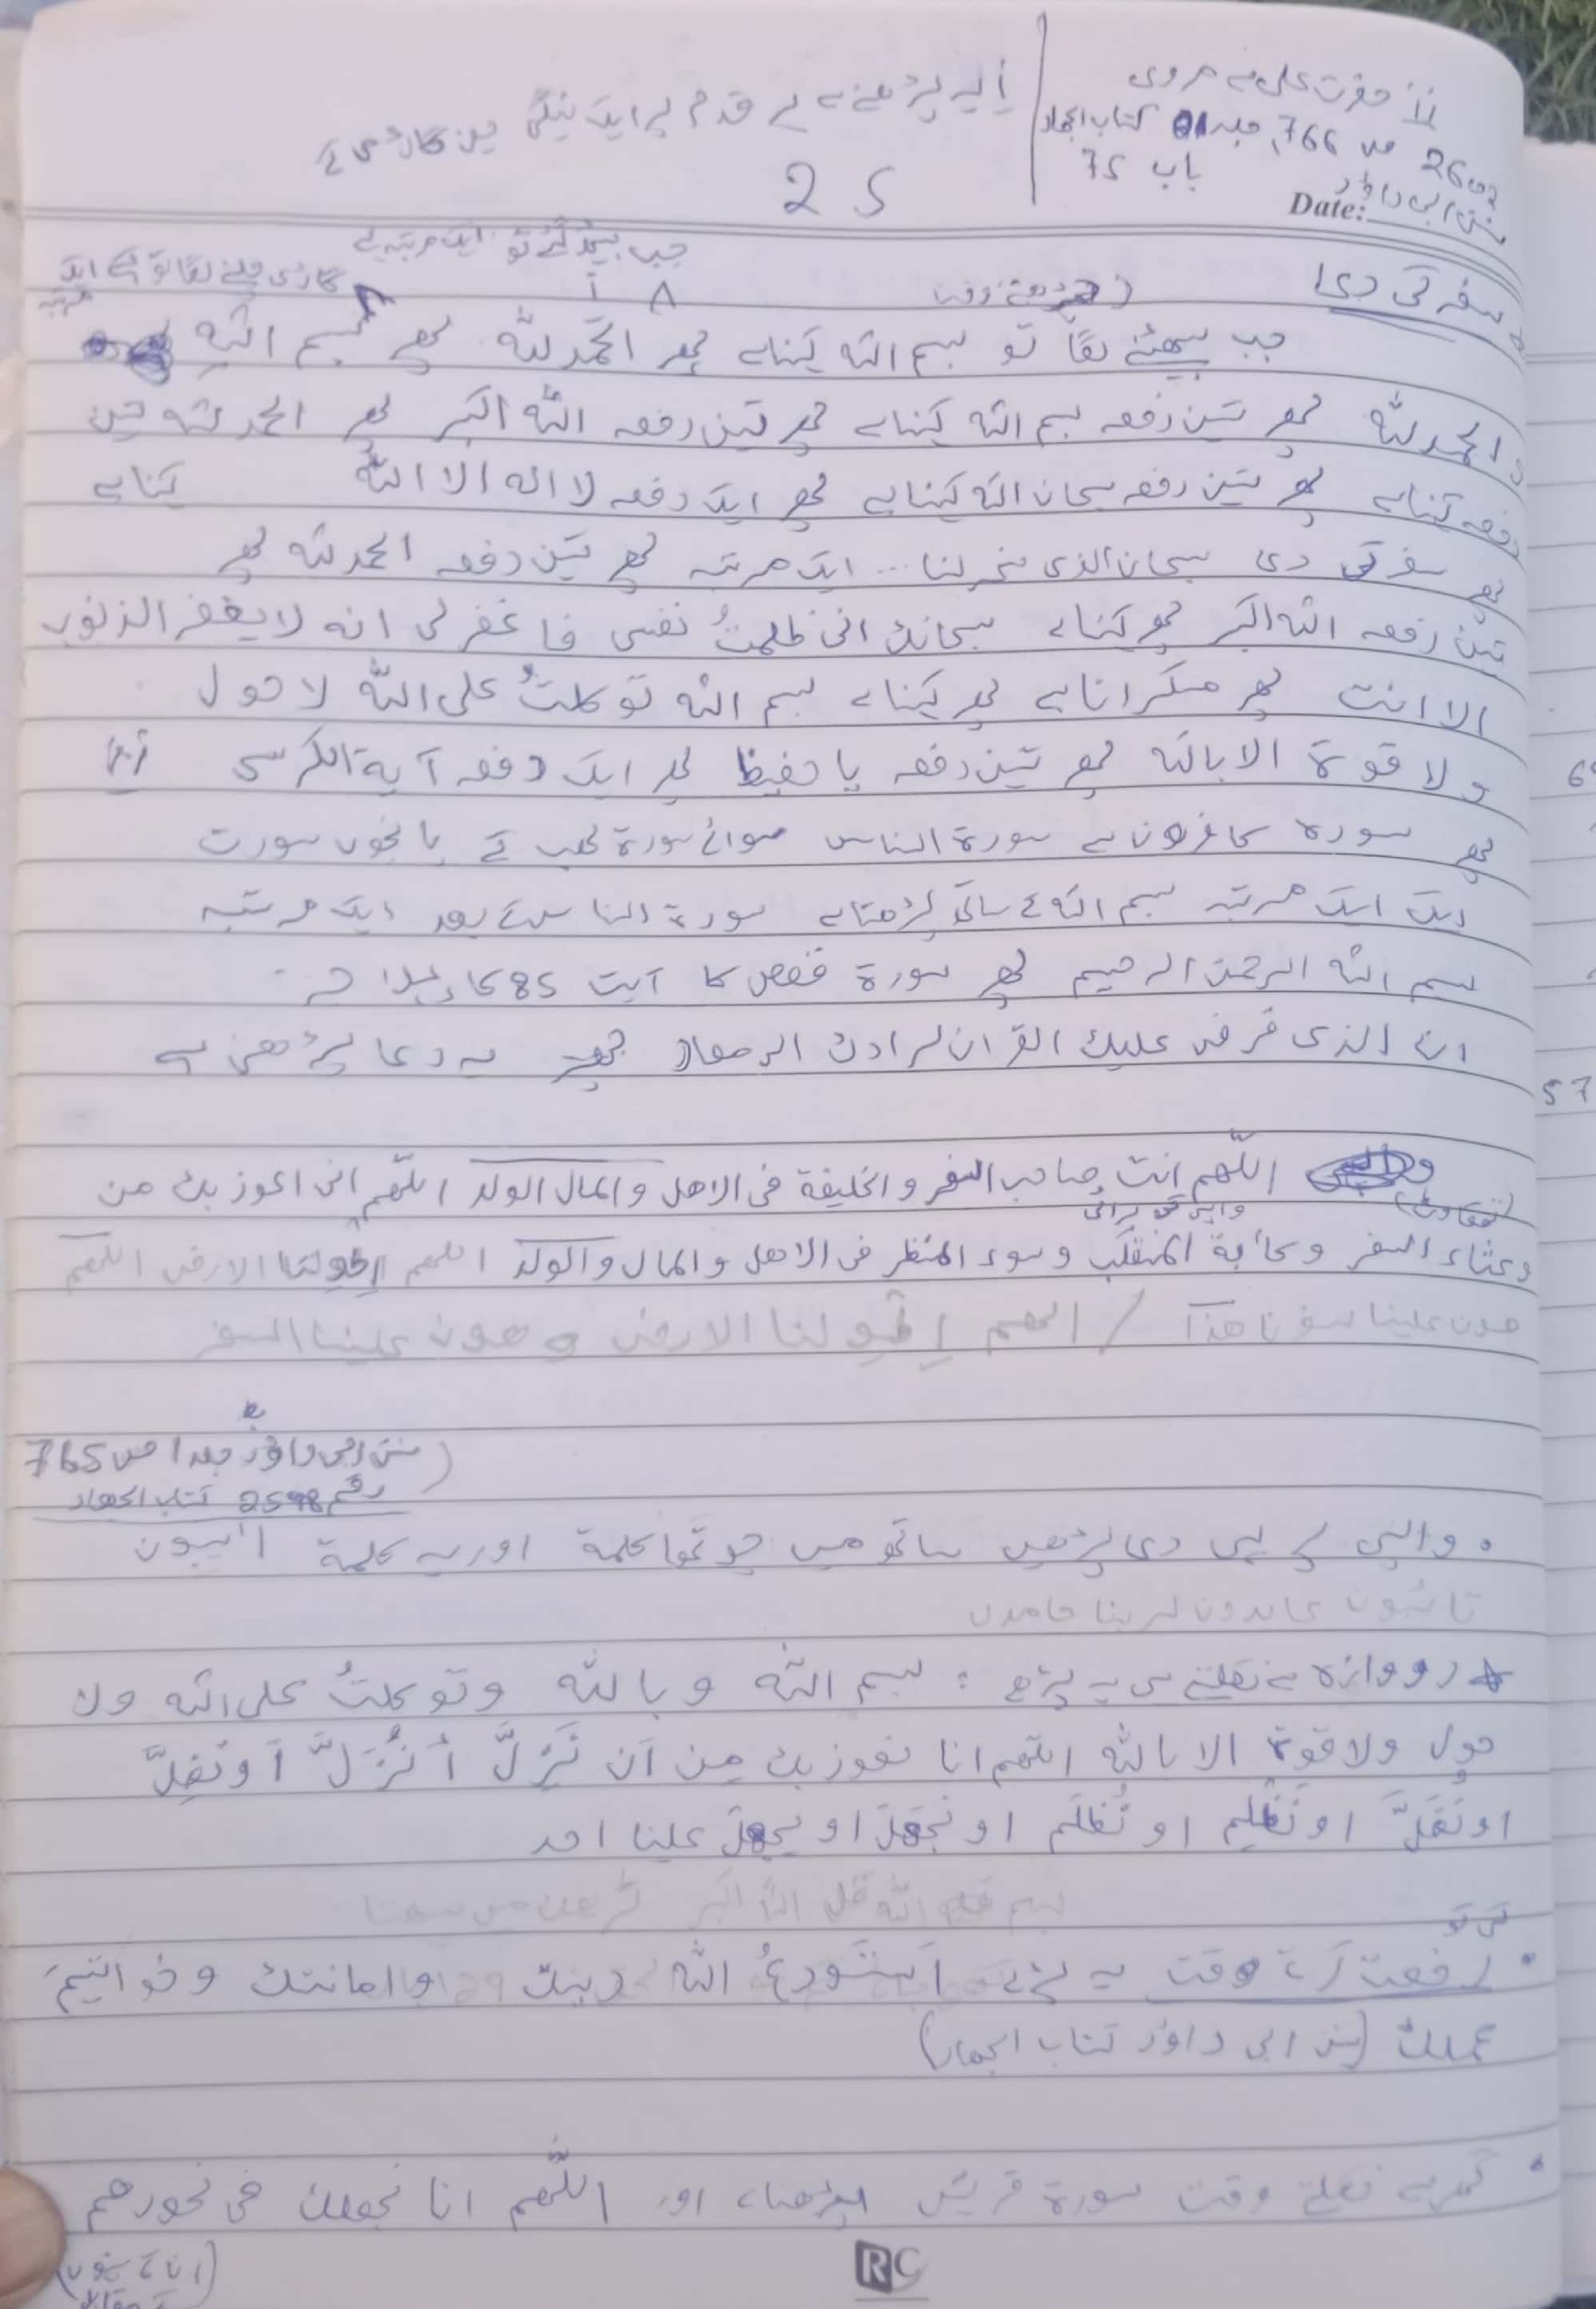 حضرت علی سے مروی
2602 ص 766، جلد 01 کتاب الجهاد
سنن ابی داؤد باب 75
پڑھنے سے قدم پر ایک نیکی
2 5
Date:
جب بیٹھ گئے تو ایک مرتبہ
گاڑی چلنے لگا تو
سفر کی دعا
جب بیٹھنے لگا تو بسم اللہ کہنا ہے پھر الحمد للہ پھر بسم اللہ
الحمد للہ پھر تین دفعہ بسم اللہ کہنا ہے پھر تین دفعہ اللہ اکبر پھر الحمد للہ تین
دفعہ کہنا ہے پھر تین دفعہ سبحان اللہ کہنا ہے پھر ایک دفعہ لا اله الا اللہ کہنا ہے
پھر سفر کی دعا سبحان الذی سخر لنا... ایک مرتبہ پھر تین دفعہ الحمد للہ پھر
تین دفعہ اللہ اکبر پھر کہنا ہے سبحانك انی ظلمتُ نفسی فاغفر لی انه لا یغفر الذنوب
الا انت پھر مسکرانا ہے پھر کہنا ہے بسم اللہ توکلتُ علی اللہ لا حول
ولا قوة الا باللہ پھر تین دفعہ یا حفیظ پھر ایک دفعہ آیة الکرسی
پھر سورہ کافرون سے سورة الناس سوائے سورة لهب کے پانچوں سورت
ایک ایک مرتبہ بسم اللہ کے ساتھ پڑھنا ہے سورة الناس کے بعد ایک مرتبہ
بسم اللہ الرحمن الرحیم پھر سورة قصص کا آیت 85 کا
ان الذی فرض علیك القران لرادك الی معاد پھر یہ دعا پڑھنی ہے
اللّٰھم انت صاحب السفر والخلیفة فی الاهل والمال الولد اللّٰھم انی اعوذ بك من
(تھکاوٹ) واپس کی برائی
وعثاء السفر وكآبة المنقلب وسوء المنظر فی الاهل والمال والولد اللھم اطو لنا الارض اللھم
هون علینا سفرنا هذا / اللھم اطو لنا الارض و هون علینا السفر
(سنن ابی داؤد جلد 1 ص 765
رقم 2598 کتاب الجهاد
• واپسی کے لیے یہی دعا پڑھیں ساتھ میں چوتھا کلمة اور یہ کلمة آئبون
تائبون عابدون لربنا حامدون
دروازہ سے نکلتے یہ پڑھے : بسم اللہ وباللہ وتوکلتُ علی اللہ ولا
حول ولا قوة الا باللہ اللّٰھم انا نعوذ بك مِن اَن نَزِلَّ أَو نُزَلَّ اَو نَضِلَّ
او نُضَلَّ او نَظلِم او نُظلَم او نَجهَلَ او یجهلَ علینا احد
رخصت کرتے وقت یہ پڑھے اَستَودِعُ اللہ دینك وامانتك وخواتیمَ
عملك (سنن ابی داؤد کتاب الجهاد)
• گھر سے نکلتے وقت سورة قریش پڑھنا ہے اور اللّٰھم انا نجعلك فی نحورهم
RC